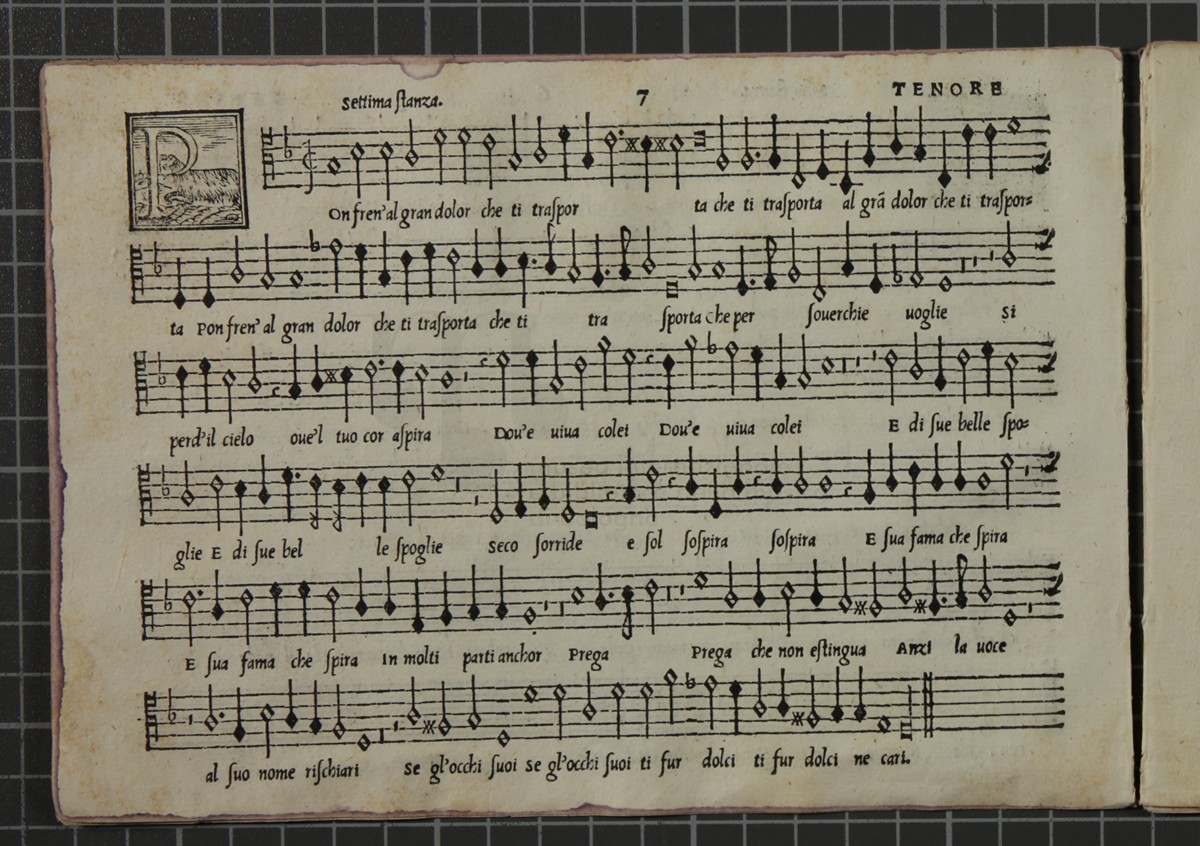 Settima ſtanza. 7 TENORE
P On fren'al gran dolor che ti traſpor ta che ti traſporta al grã dolor che ti traſpor=
ta Pon fren'al gran dolor che ti traſporta che ti tra ſporta che per ſouerchie uoglie Si
perd'il cielo oue'l tuo cor aſpira Dou'e uiua colei Dou'e uiua colei E di ſue belle ſpo=
glie E di ſue bel le ſpoglie ſeco ſorride e ſol ſoſpira ſoſpira E ſua fama che ſpira
E ſua fama che ſpira In molti parti anchor Prega Prega che non eſtingua Anzi la uoce
al ſuo nome riſchiari Se gl'occhi ſuoi Se gl'occhi ſuoi ti fur dolci ti fur dolci ne cari.